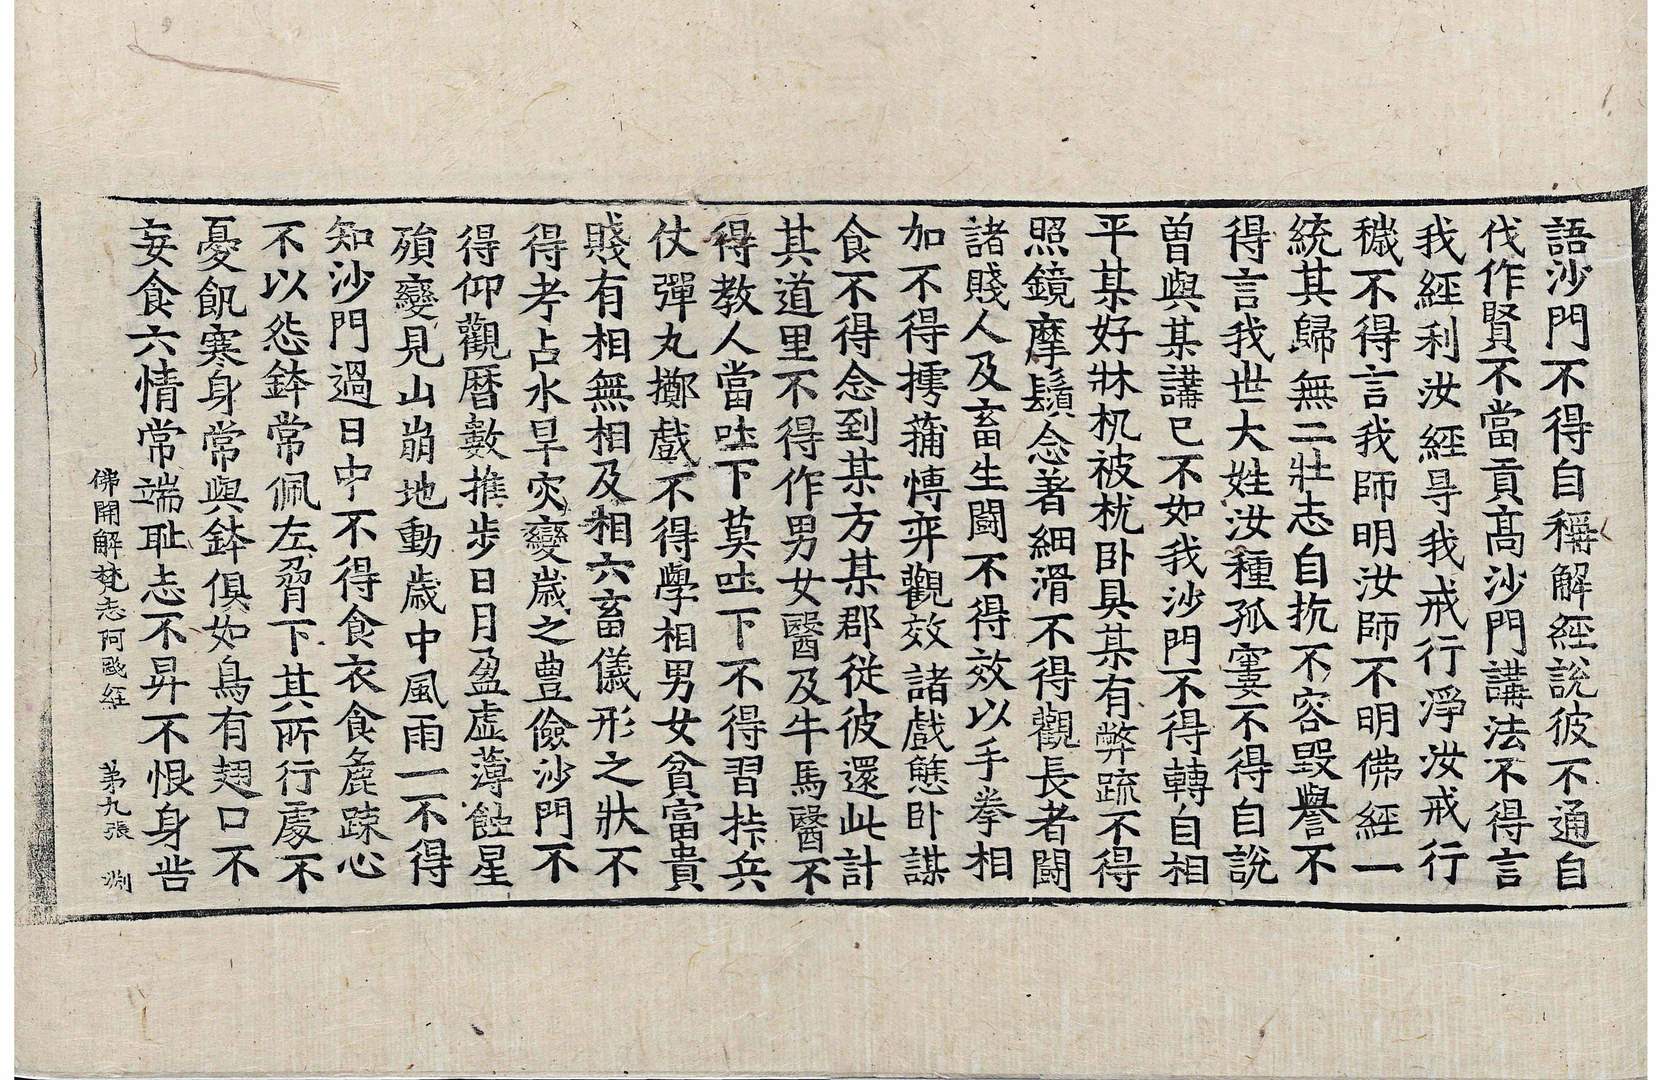 語沙門不得自稱解經說彼不通自
伐作賢不當貢高沙門講法不得言
我經利汝經㝵我戒行淨汝戒行
穢不得言我師明汝師不明佛經一
統其歸無二壯志自抗不容毀譽不
得言我世大姓汝種孤窶不得自說
曽與某講已不如我沙門不得轉自相
平某好牀机被枕卧具某有弊䟽不得
照鏡摩鬚念著細滑不得觀長者鬪
諸賤人及畜生鬪不得效以手拳相
加不得摴蒱愽弈觀效諸戲態卧謀
食不得念到某方某郡從彼還此計
其道里不得作男女醫及牛馬醫不
得教人當吐下莫吐下不得習持兵
仗彈丸擲戲不得學相男女貧富貴
賤有相無相及相六畜儀形之狀不
得考占水旱灾變歲之豊儉沙門不
得仰觀曆數推步日月盈虛薄蝕星
殞變見山崩地動歲中風雨一不得
知沙門過日中不得食衣食麁踈心
不以惒鉢常佩左脅下其所行處不
憂飢寒身常與鉢俱如鳥有翅口不
妄食六情常端恥志不昇不恨身呰
佛開解梵志阿颰經 第九張 渊